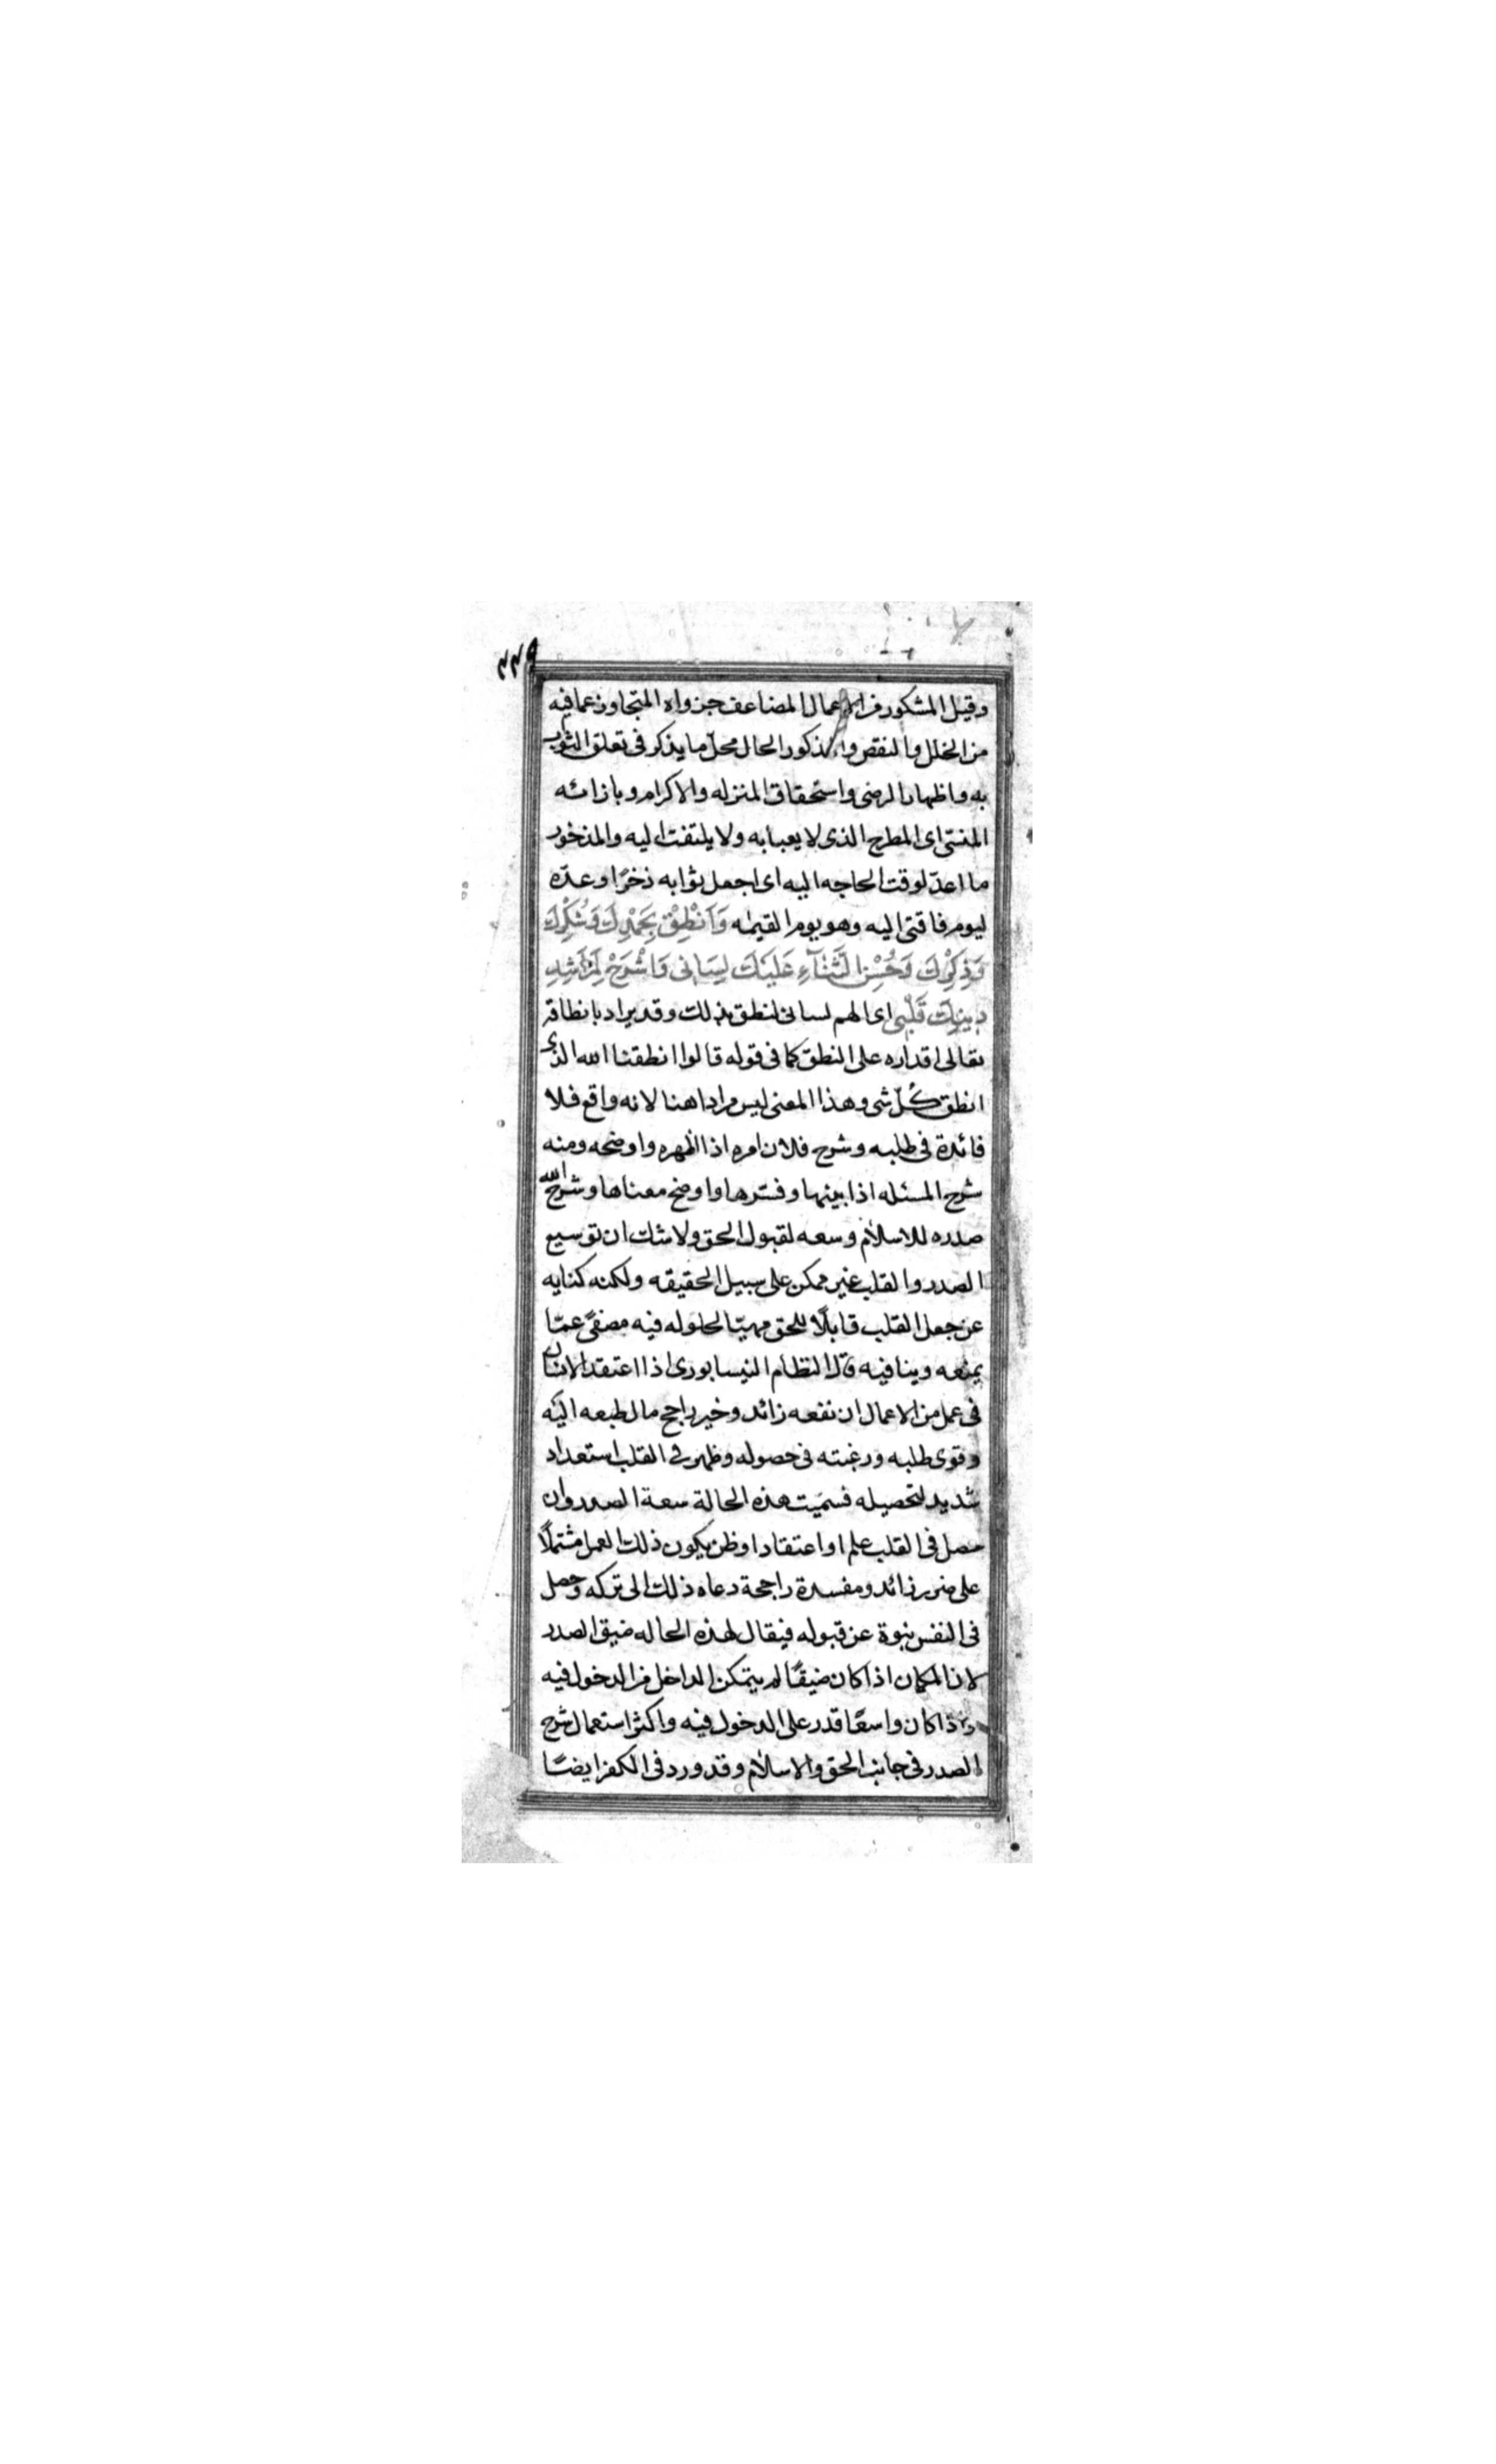 وقيل المشكور من الاعمال المضاعف جزواه المتجاوز عما فيه
من الخلل والنقص والمذكور الحال محلّ ما يذكر فى تعلق الثواب
به واظهار الرضى واستحقاق المنزله والاكرام وبازائه
المنسّى اى المطرح الذى لا يعبا به ولا يلتفت اليه والمذخور
ما اعدّ لوقت الحاجه اليه اى اجعل ثوابه ذخرًا وعدّه
ليوم فاقتى اليه وهو يوم القيمه وَاَنْطِقْ بِحَمْدِكَ وَشُكْرِكَ
وَذِكْرِكَ وَحُسْنِ الثَّنَآءِ عَلَيْكَ لِسَانى وَاشْرَحْ لِمَرَاشِدِ
دِينِكَ قَلْبى اى الهم لسانى لنطق بذلك وقد يراد بانطاقه
تعالى اقداره على النطق كما فى قوله قالوا انطقنا الله الذى
انطق كُلّ شى وهذا المعنى ليس مرادا هنا لانه واقع فلا
فائدة فى طلبه وشرح فلان امره اذا اظهره واوضحه ومنه
شرح المسئله اذا بينها وفسّرها واوضح معناها وشرح الله
صدره للاسلام وسعه لقبول الحق ولا شك ان توسيع
الصدر والقلب غير ممكن على سبيل الحقيقه ولكنه كنايه
عن جعل القلب قابلًا للحق مهيّا لحلوله فيه مصفىً عمّا
يمنعه وينافيه قال النظام النيسابورى اذا اعتقد الانسان
فى عمل من الاعمال ان نفعه زائد وخيره راجح مال طبعه اليه
وقوى طلبه ورغبته فى حصوله وظهر فى القلب استعداد
شديد لتحصيله فسميت هذه الحالة سعة الصدر وان
حصل فى القلب علم او اعتقاد او ظن بكون ذلك العمل مشتملًا
على ضرر زائد ومفسدة راجحة دعاه ذلك الى تركه وحصل
فى النفس نبوة عن قبوله فيقال لهذه الحاله ضيق الصدر
لان المكان اذا كان ضيقًا لم يتمكن الداخل من الدخول فيه
واذا كان واسعًا قدر على الدخول فيه واكثر استعمال شرح
الصدر فى جانب الحق والاسلام وقد ورد فى الكفر ايضًا